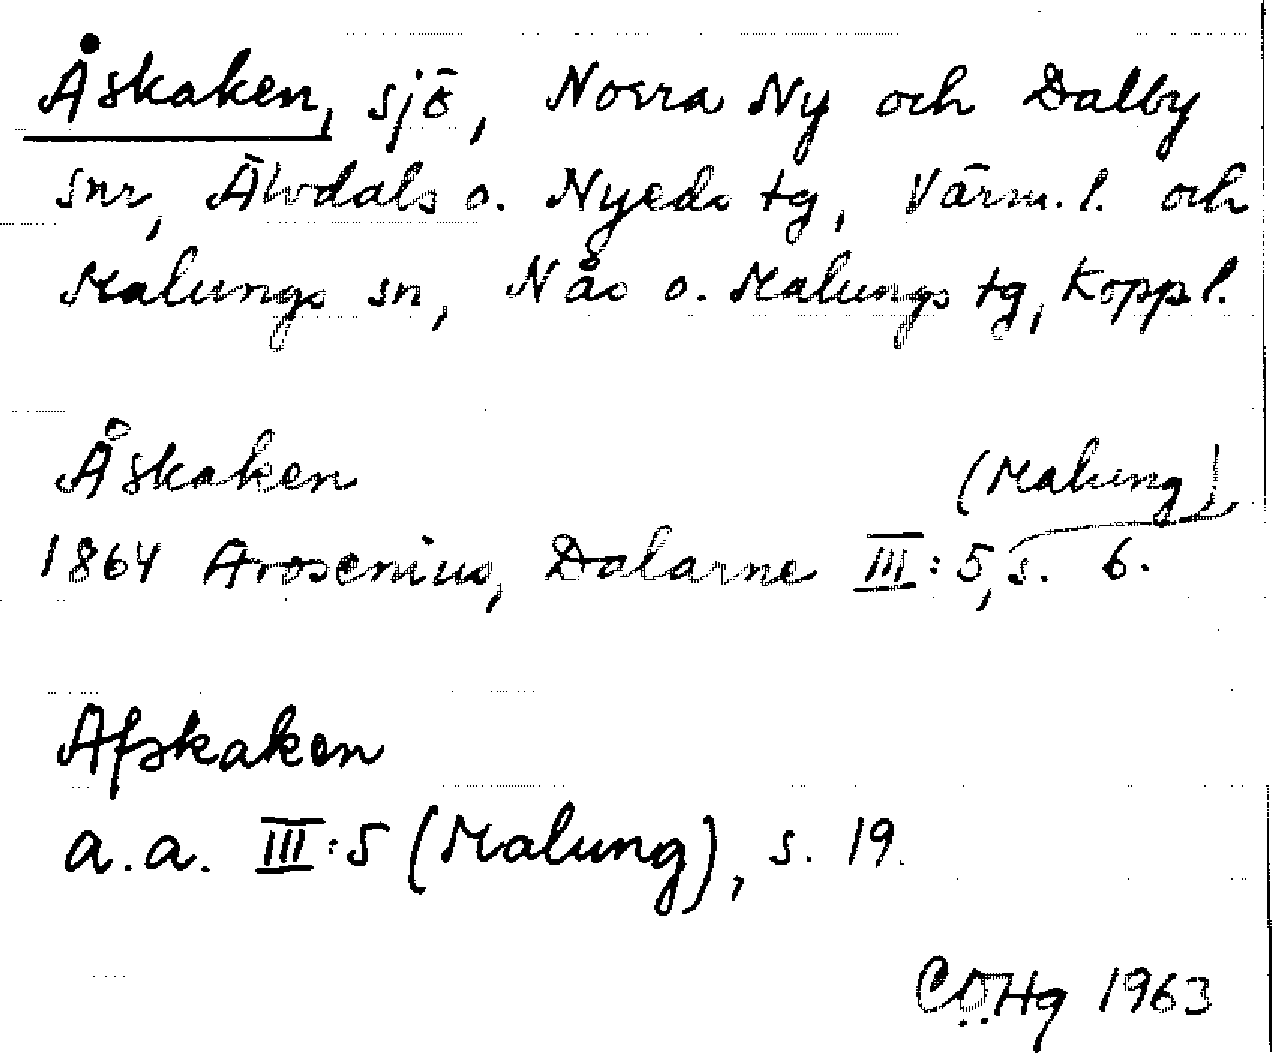 Åskaken, sjö, Norra Ny och Dalby
snr, Älvdals o. Nyeds tg, Värm. l. och
Malungs sn, Nås o. Malungs tg, Kopp l.
Åskaken (Malung)
1864 Arosenius, Dalarne III:5, s. 6.
Afskaken
a.a. III:5 (Malung), s. 19.
CÖHg 1963